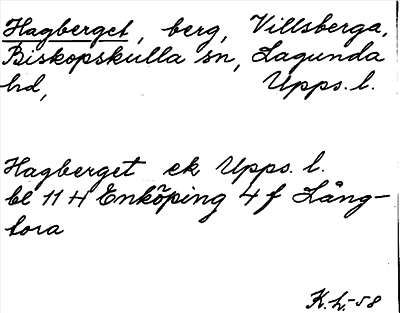 Hagberget, berg, Villsberga,
Biskopskulla sn, Lagunda
hd, Upps. l.
Hagberget ek Upps. l.
bl 11 H Enköping 4 f Lång-
tora
K.h.-58